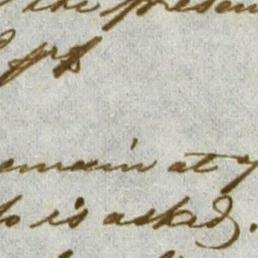 the presen
emain at y
to is asked.